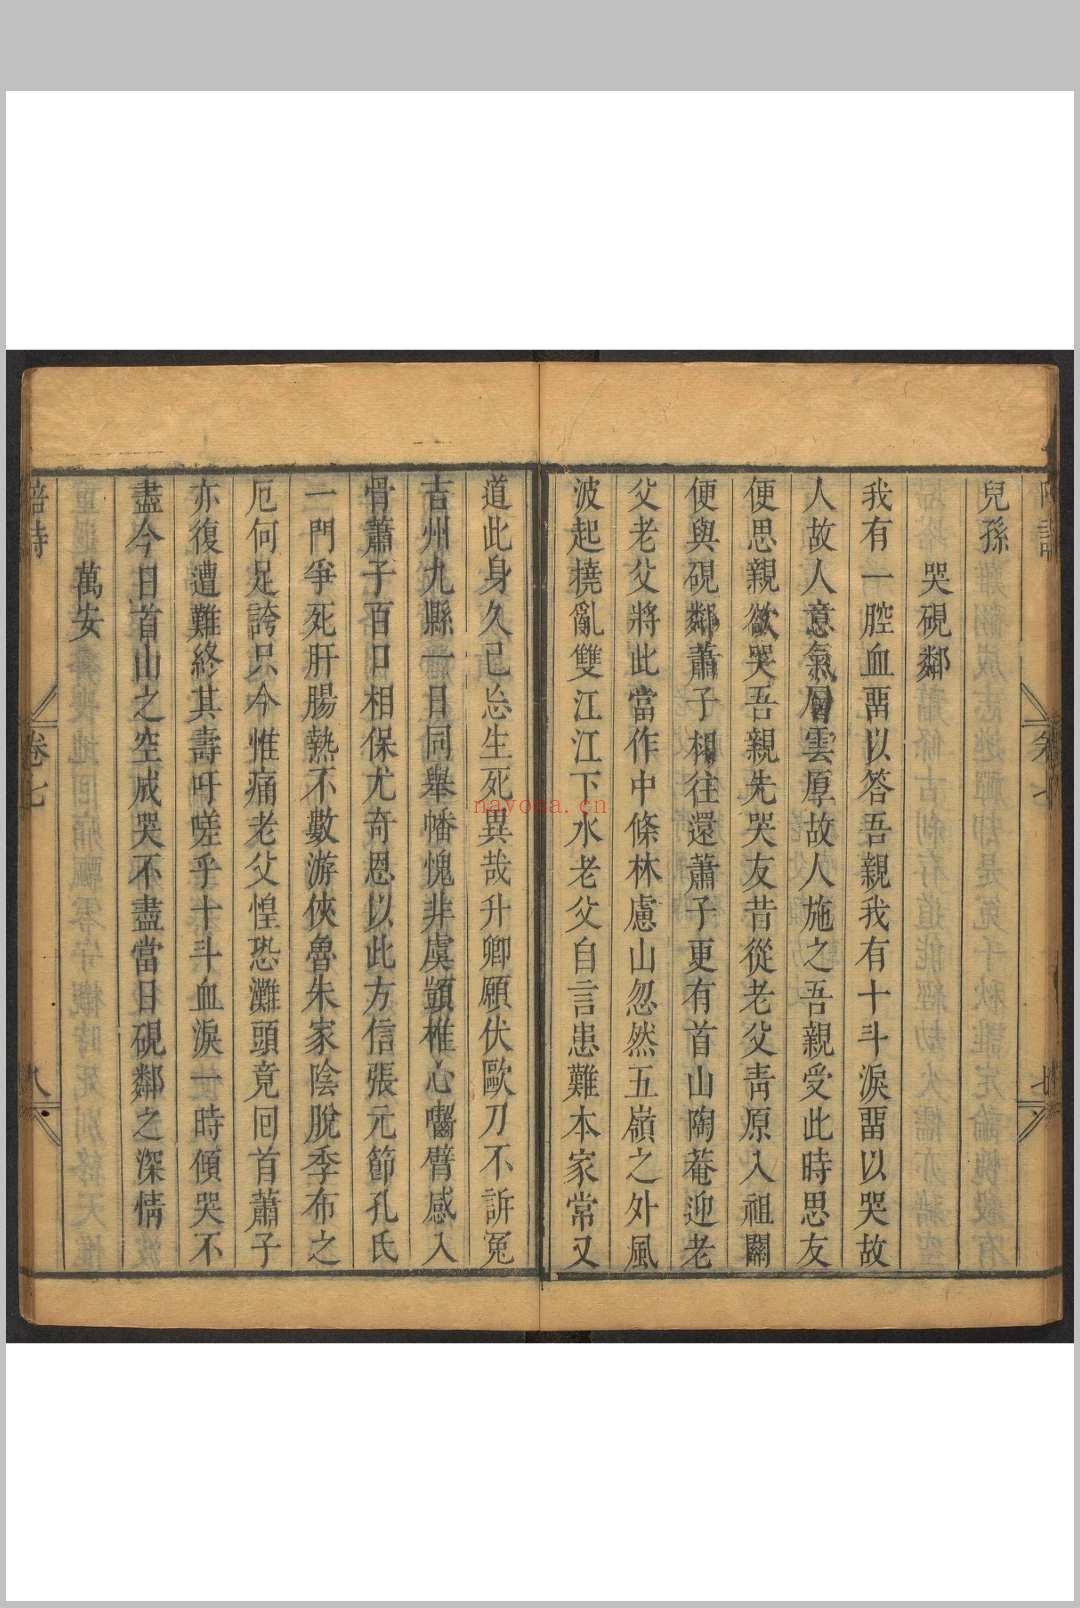 兒孫
哭硯鄰
我有一腔血畱以答吾親我有十斗淚畱以哭故
人故人意氣層雲厚故人施之吾親受此時思友
便思親欲哭吾親先哭友昔從老父青原入祖關
便與硯鄰蕭子相往還蕭子更有首山陶菴迎老
父老父將此當作中條林慮山忽然五嶺之外風
波起撓亂雙江江下水老父自言患難本家常又
道此身久已忘生死異哉升卿願伏歐刀不訴冤
吉州九縣一日同舉幡愧非虞顗椎心嚙臂感入
骨蕭子百口相保尤奇恩以此方信張元節孔氏
一門爭死肝腸熱不數游俠魯朱家陰脫季布之
厄何足誇只今惟痛老父惶恐灘頭竟回首蕭子
亦復遭難終其壽吁嗟乎十斗血淚一時傾哭不
盡今日首山之空成哭不盡當日硯鄰之深情
萬安
陪詩
卷七
八
nayona.cn